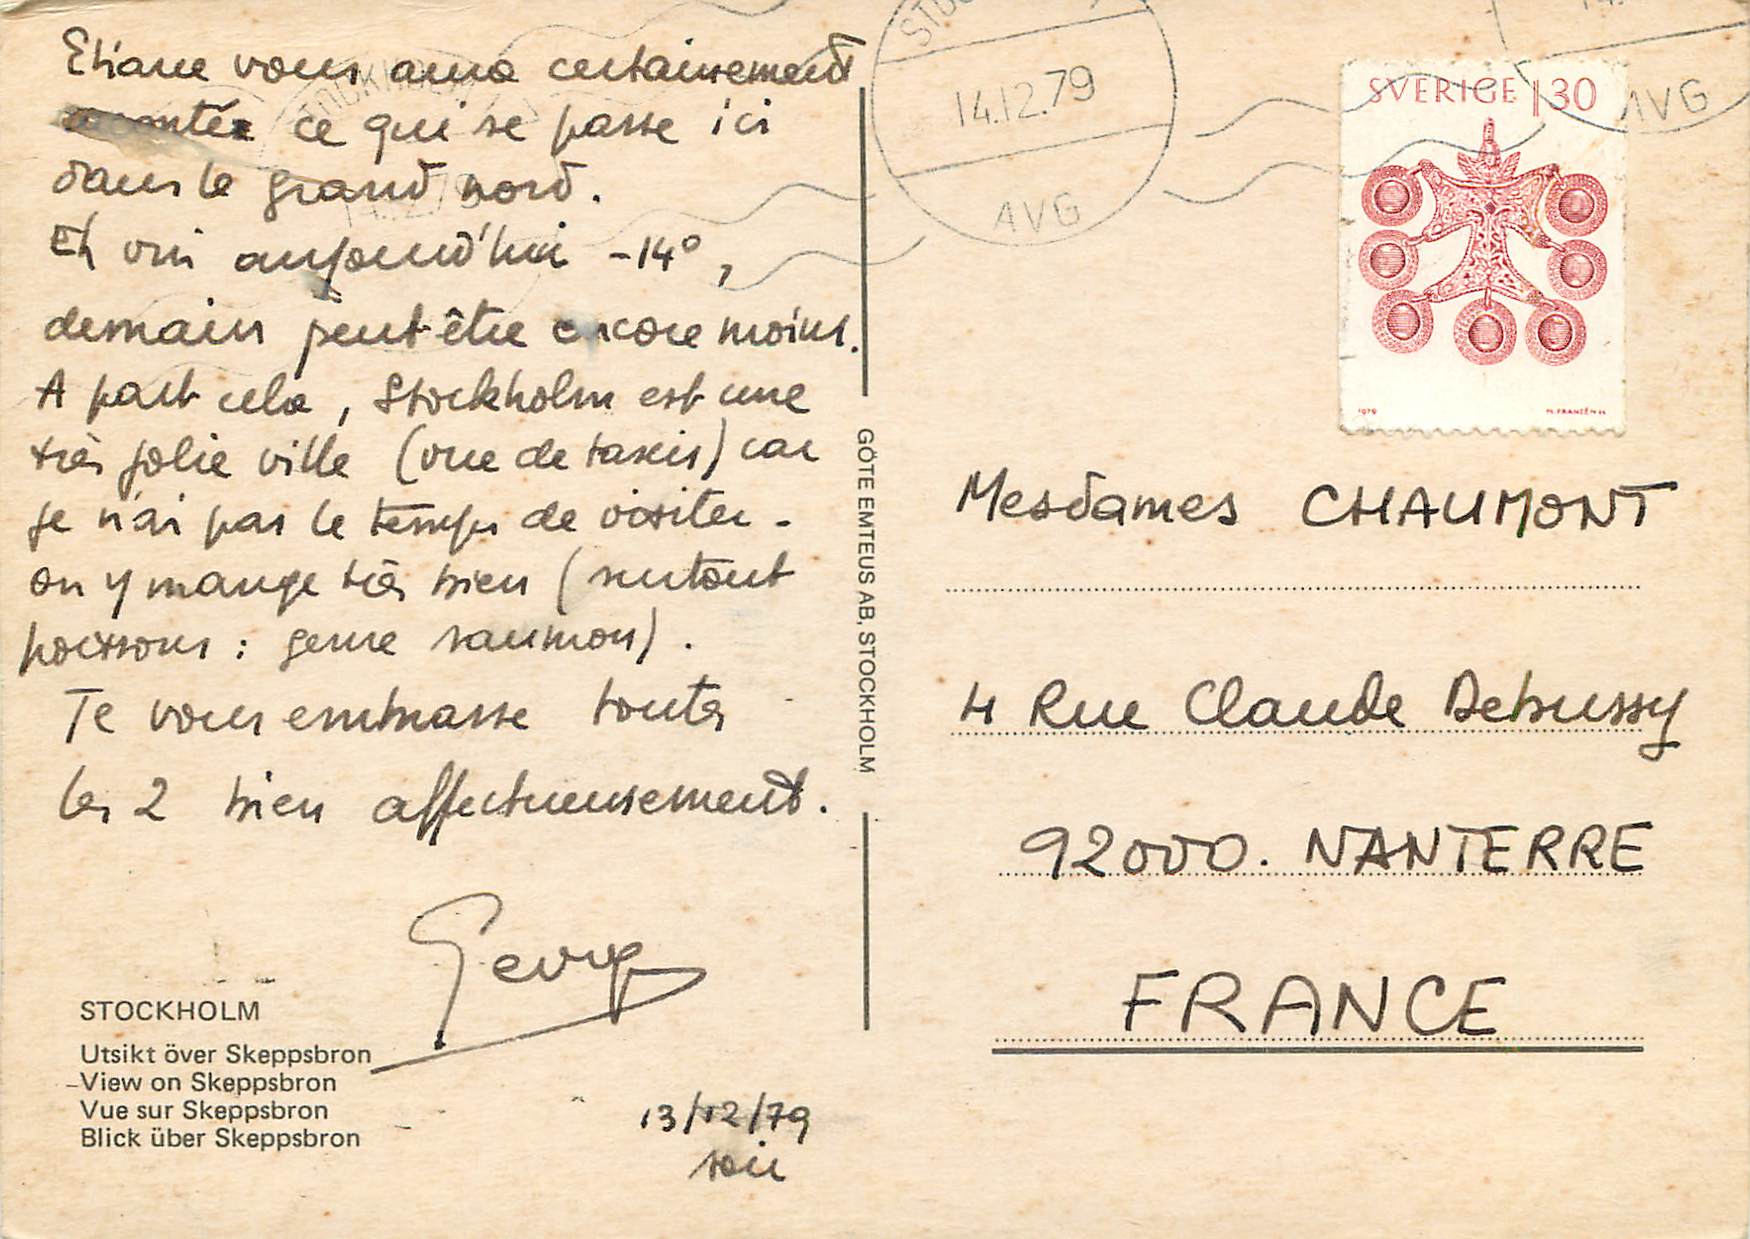 Eliane vous aura certainement
racontée ce qui se passe ici
dans le grand nord.
Eh oui aujourd'hui -14°,
demain peut être encore moins.
A part cela, Stockholm est une
très jolie ville (vue de taxis) car
je n'ai pas le temps de visiter -
on y mange très bien (surtout
poissons : genre saumon).
Je vous embrasse toutes
les 2 bien affectueusement.
Georg
13/12/79
soir
STOCKHOLM
Utsikt över Skeppsbron
View on Skeppsbron
Vue sur Skeppsbron
Blick über Skeppsbron
GÖTE EMTEUS AB, STOCKHOLM
14.12.79
AVG
AVG
SVERIGE 130
1979
Mesdames CHAUMONT
4 Rue Claude Debussy
92000. NANTERRE
FRANCE